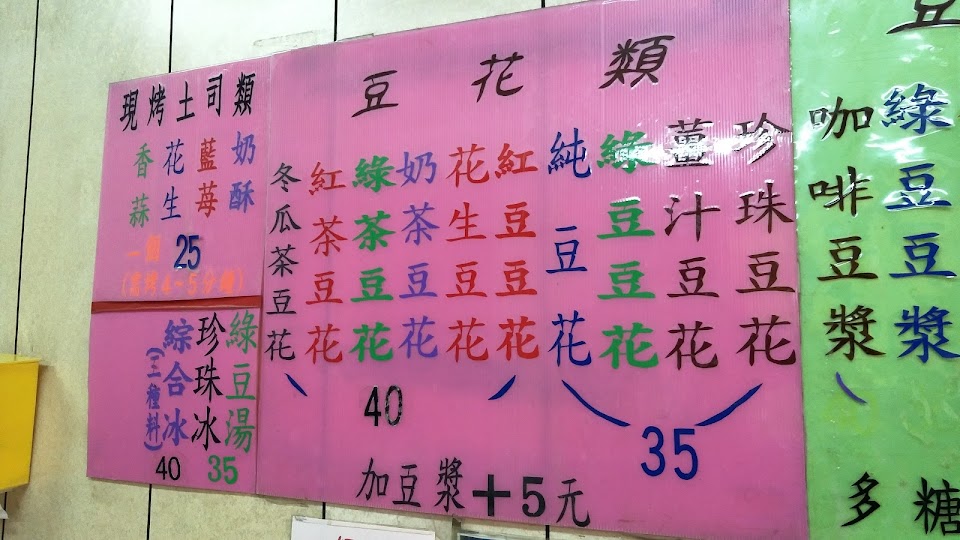 現烤土司類
奶酥
藍莓
花生
香蒜
一個 25
(需烤4~5分鐘)
綠豆湯
珍珠冰
35
綜合冰
(三種料)
40
豆花類
珍珠豆花
薑汁豆花
綠豆豆花
純豆花
35
紅豆豆花
花生豆花
奶茶豆花
綠茶豆花
紅茶豆花
冬瓜茶豆花
40
加豆漿+5元
豆
綠豆漿
咖啡豆漿
糖
多